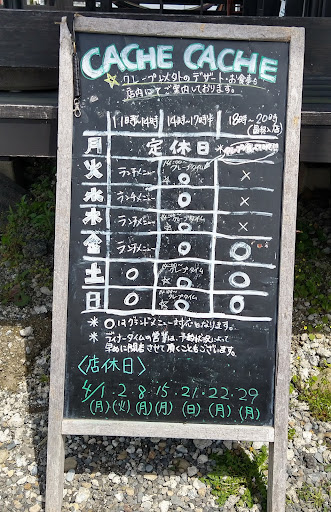 CACHE CACHE
☆クレープ以外のデザート・お食事も
店内にてご案内しております。
11時〜14時 14時〜17時半 18時〜20時
月 定休日
火 ランチメニュー クレープタイム ○ ×
水 ランチメニュー ○ ×
木 ランチメニュー クレープタイム ○ ×
金 ランチメニュー ○ ○
土 ○ クレープタイム ○ ○
日 ○ ○ クレープタイム ○
※ ○はグランドメニュー対応となります。
※ ディナータイムの営業は、予約状況によって
早めに閉店させて頂くこともございます。
〈店休日〉
4/1・2・8・15・21・22・29
(月)(火)(月)(月)(日)(月)(月)